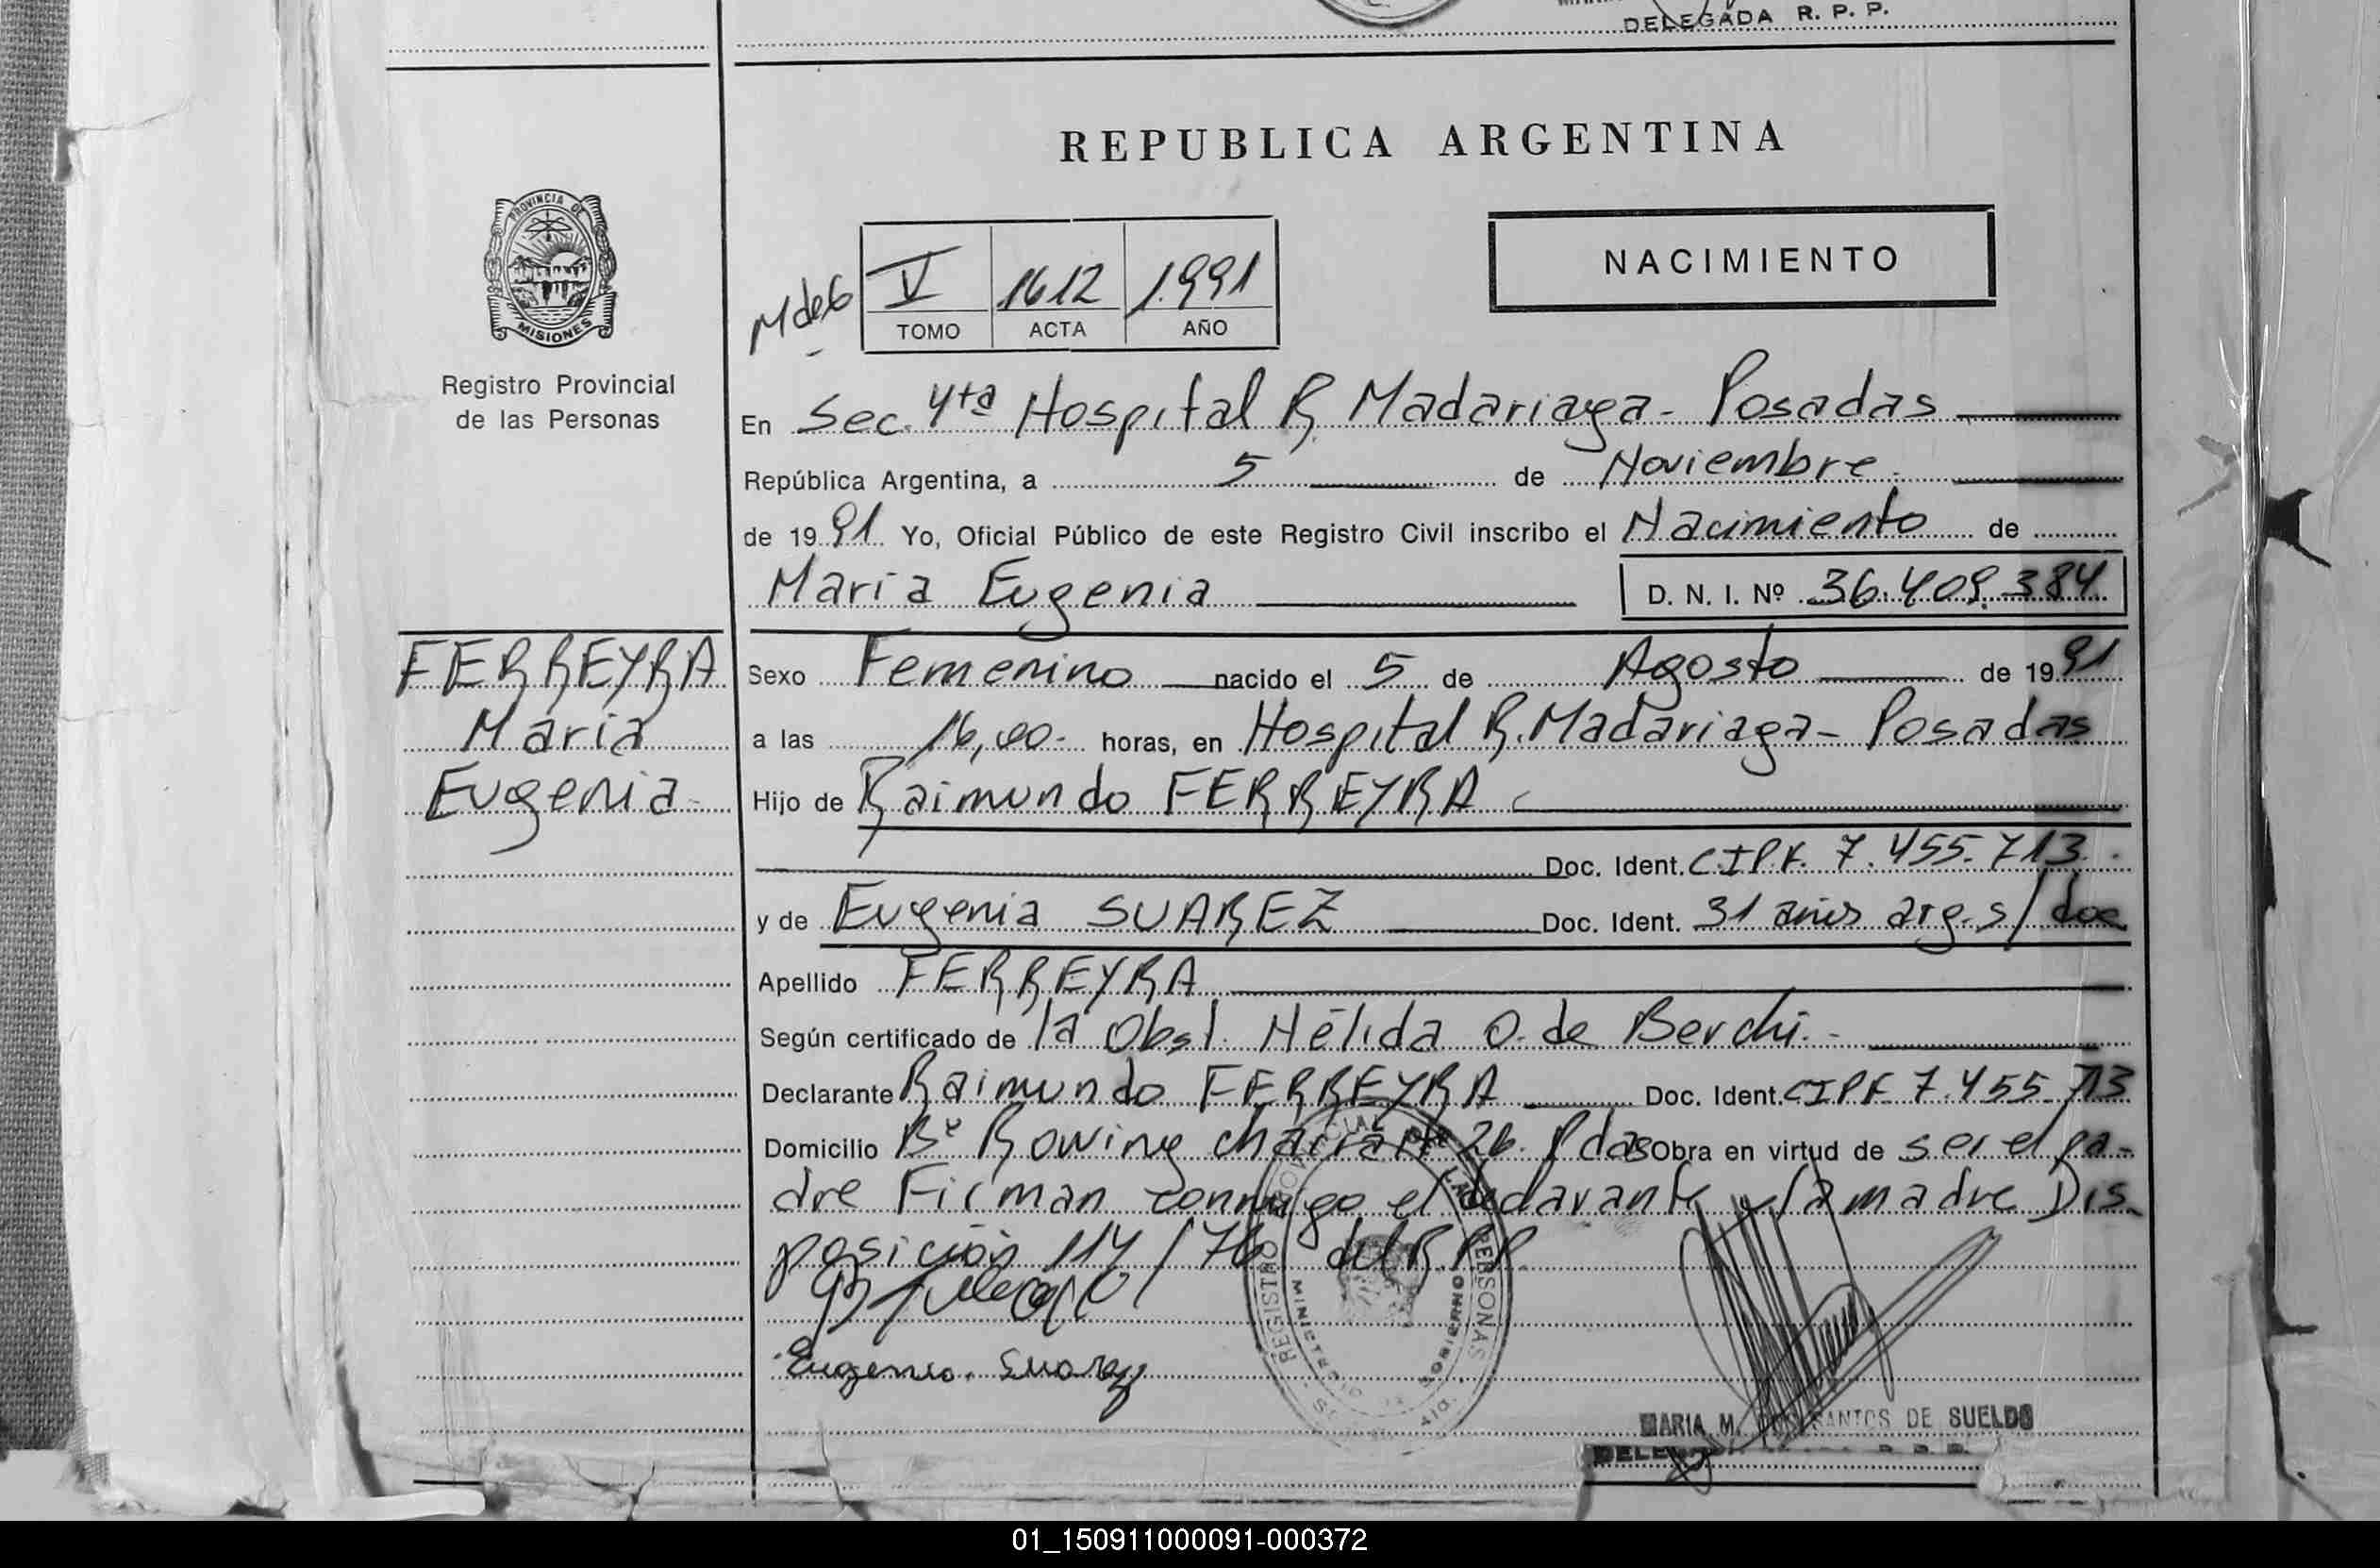 DELEGADA R. P. P.
REPUBLICA ARGENTINA
PROVINCIA DE
MISIONES
Registro Provincial
de las Personas
NACIMIENTO
M de G
V 1612 1.991
TOMO ACTA AÑO
En Sec. 4ta Hospital R. Madariaga - Posadas
República Argentina, a 5 de Noviembre.
de 1991 Yo, Oficial Público de este Registro Civil inscribo el Nacimiento de
Maria Eugenia D. N. I. Nº 36.409.384
FERREYRA
Maria
Eugenia
Sexo Femenino nacido el 5 de Agosto de 1991
a las 16,00 horas, en Hospital R. Madariaga - Posadas
Hijo de Raimundo FERREYRA
Doc. Ident. C.I.P.F. 7.455.713
y de Eugenia SUAREZ Doc. Ident. 31 años arg. s/doc
Apellido FERREYRA
Según certificado de la Obst. Nélida O. de Berchi.-
Declarante Raimundo FERREYRA Doc. Ident. CIPF 7.455.713
Domicilio Bº Rowing 26. Pdas Obra en virtud de ser el pa-
dre Firman conmigo el declarante y la madre Dis-
posición 114/76 del R.P.P.
Eugenia. Suarez
REGISTRO PROVINCIAL DE LAS PERSONAS
MINISTERIO DE GOBIERNO
MARIA M. DOS SANTOS DE SUELDO
01_150911000091-000372